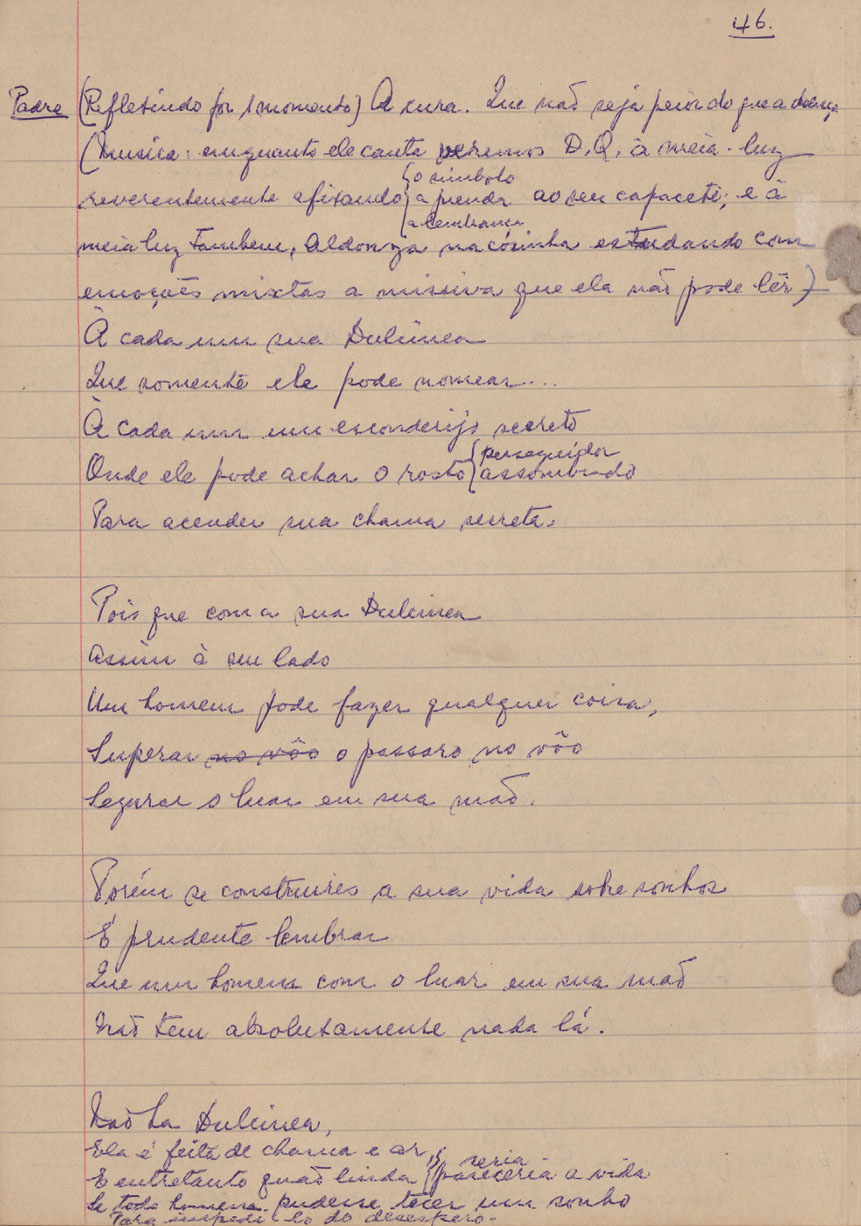 46.
Padre (Refletindo por 1 momento) A cura. Que não seja peior do que a doença
(Musica: enquanto ele canta veremos D.Q. à meia-luz
o simbolo
reverentemente afixando { a prenda ao seu capacete; e à
a lembrança
meia luz tambem, Aldonza na cósinha estudando com
emoções mixtas a missiva que ela não pode lêr)
À cada um sua Dulcinea
Que somente ele pode nomear...
À cada um um esconderijo secreto
perseguidor
Onde ele pode achar o rosto { assombrado
Para acender sua chama secreta.
Pois que com a sua Dulcinea
Assim à seu lado
Um homem pode fazer qualquer coisa,
Superar no vôo o passaro no vôo
Segurar o luar em sua mão.
Porém se construires a sua vida sobre sonhos
É prudente lembrar
Que um homem com o luar em sua mão
Não tem absolutamente nada lá.
Não ha Dulcinea,
Ela é feita de chama e ar,
seria
E entretanto quão linda { pareceria a vida
Se todo homem pudesse tecer um sonho
Para impedi-lo do desespero.